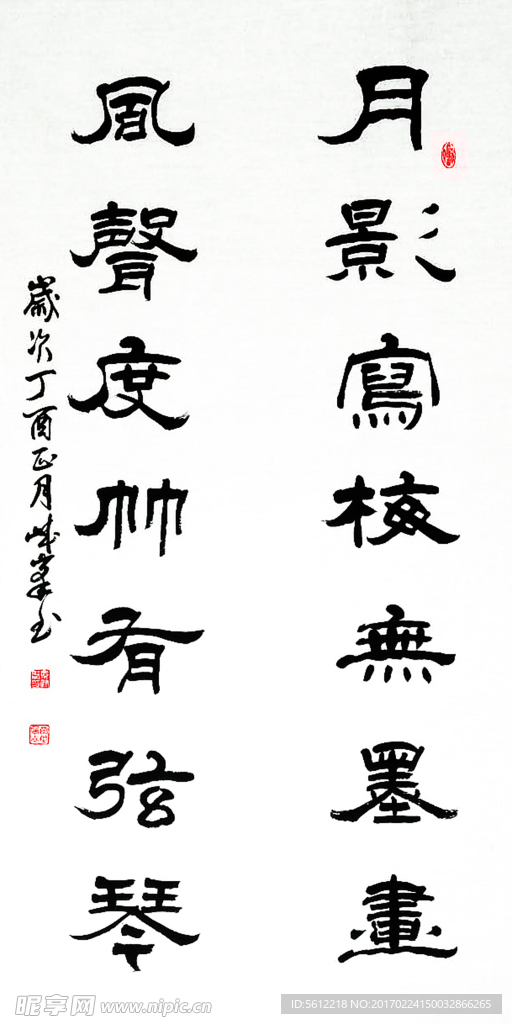 月影寫梅無墨畫
風聲度竹有弦琴
歲次丁酉正月
昵享网 www.nipic.cn
ID:5612218 NO:20170224150032866265